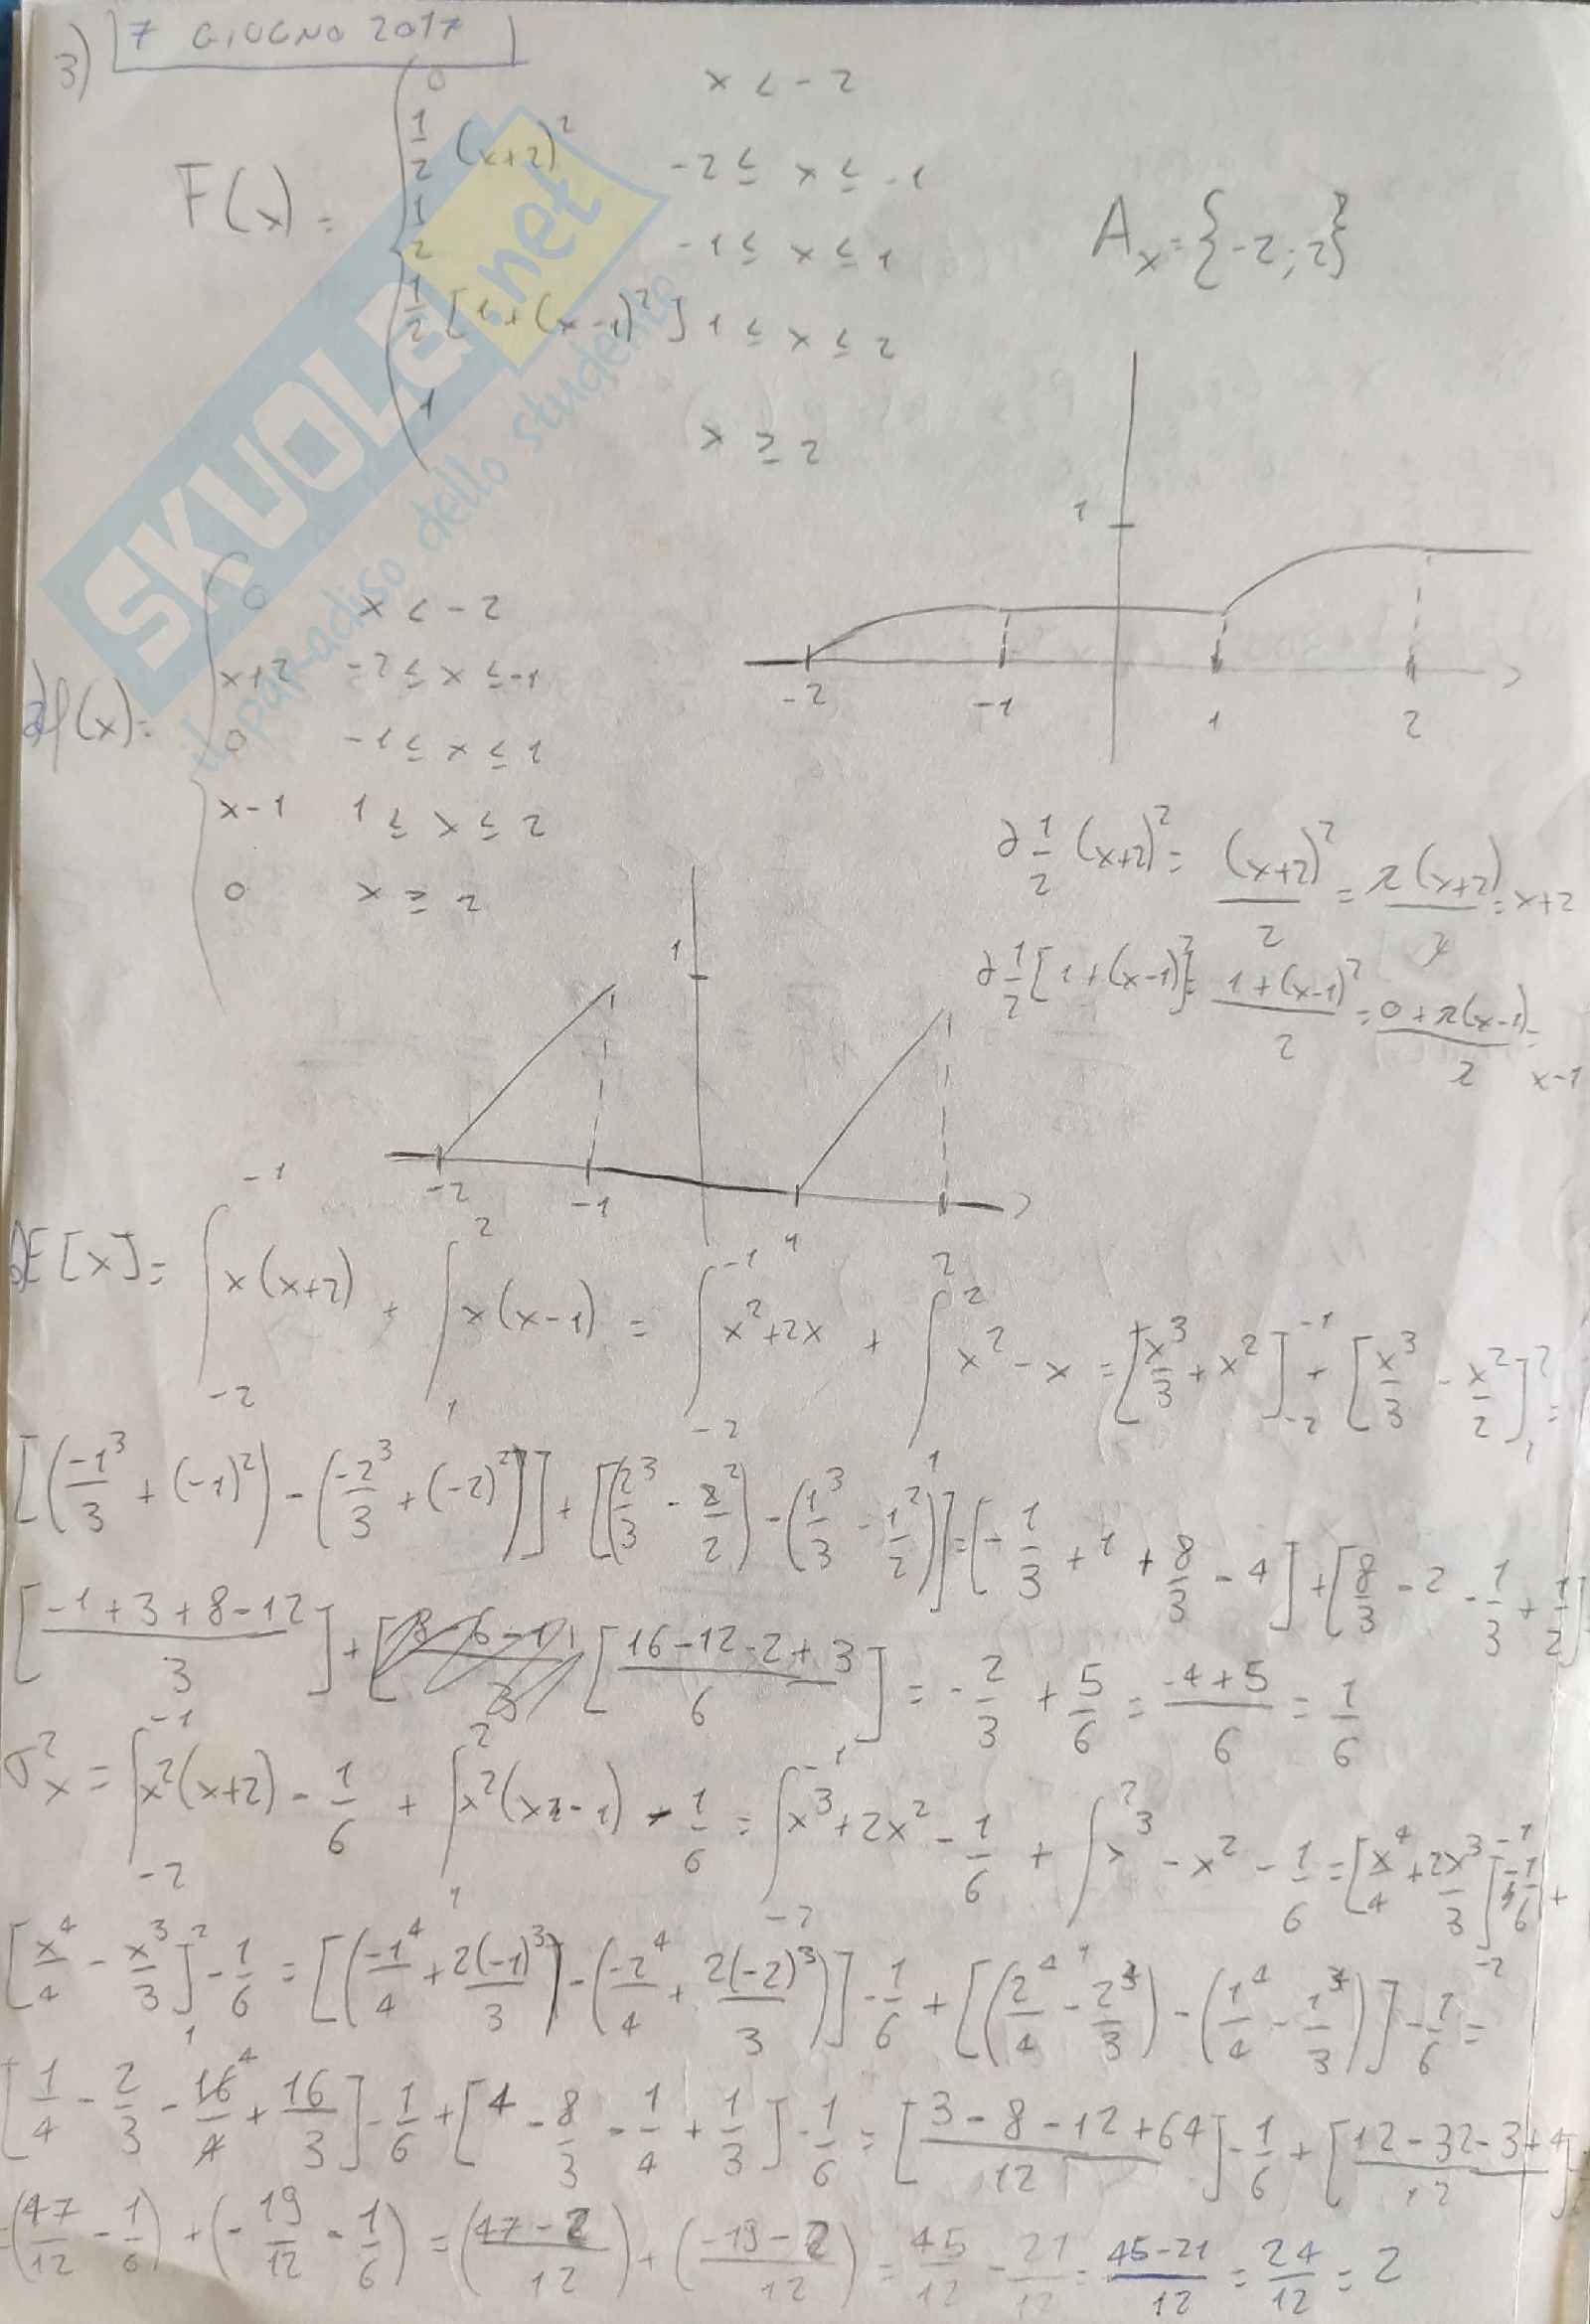 3) 7 GIUGNO 2017
F(x) =
0 x < -2
1/2 (x+2)² -2 ≤ x ≤ -1
1/2 -1 ≤ x ≤ 1
1/2 [1+(x-1)²] 1 ≤ x ≤ 2
1 x ≥ 2
A_x = {-2; 2}
SKUOLA.net
il paradiso dello studente
1
-2 -1 1 2
a) f(x) =
0 x < -2
x+2 -2 ≤ x ≤ -1
0 -1 ≤ x ≤ 1
x-1 1 ≤ x ≤ 2
0 x ≥ 2
∂ 1/2 (x+2)² = (x+2)²/2 = 2(x+2)/2 = x+2
∂ 1/2 [1+(x-1)²] = 1+(x-1)²/2 = 0+2(x-1)/2 = x-1
1
-2 -1 1 2
b) E[x] = ∫_{-2}^{-1} x(x+2) + ∫_1^2 x(x-1) = ∫_{-2}^{-1} x²+2x + ∫_1^2 x²-x = [x³/3 + x²]_{-2}^{-1} + [x³/3 - x²/2]_1^2 =
[(-1³/3 + (-1)²) - (-2³/3 + (-2)²)] + [(2³/3 - 2²/2) - (1³/3 - 1²/2)] = [-1/3 + 1 + 8/3 - 4] + [8/3 - 2 - 1/3 + 1/2]
[-1+3+8-12/3] + [16-12-2+3/6] = -2/3 + 5/6 = -4+5/6 = 1/6
σ²_x = ∫_{-2}^{-1} x²(x+2) - 1/6 + ∫_1^2 x²(x-1) - 1/6 = ∫_{-2}^{-1} x³+2x² - 1/6 + ∫_1^2 x³ - x² - 1/6 = [x⁴/4 + 2x³/3]_{-2}^{-1} - 1/6 +
[x⁴/4 - x³/3]_1^2 - 1/6 = [(-1⁴/4 + 2(-1)³/3) - (-2⁴/4 + 2(-2)³/3)] - 1/6 + [(2⁴/4 - 2³/3) - (1⁴/4 - 1³/3)] - 1/6 =
[1/4 - 2/3 - 16/4 + 16/3] - 1/6 + [4 - 8/3 - 1/4 + 1/3] - 1/6 = [3-8-12+64/12] - 1/6 + [12-32-3+4/12]
= (47/12 - 1/6) + (-19/12 - 1/6) = (47-2/12) + (-19-2/12) = 45/12 - 21/12 = 45-21/12 = 24/12 = 2